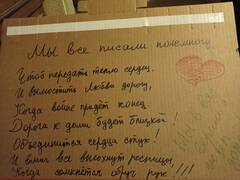 Мы все писали понемногу
Чтоб передать тепло сердец.
И вымостить Любви дорогу,
Когда войне придёт конец.
Дорога к дому будет близкой!
Объединится сердца стук!
И вмиг все высохнут росинцы,
Когда сомкнётся обруч рук!!!